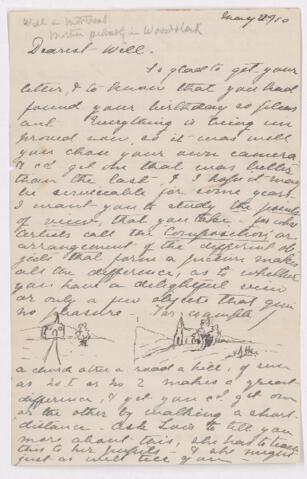 Will in Montreal
Mother probably in Woodstock
May 28/10
Dearest Will.
So glad to get your
letter, & to know that you had
found your birthday so pleas
ant. Everything is being im
proved now, so it was well
you chose your own camera
& c'd get one that was better
than the last. I hope it may
be serviceable for some years.
I want you to study the points
of view, that you take - for what
artists call the composition or
arrangement of the different ob
jects that form a picture makes
all the difference, as to whether
you have a delightful view
or only a few objects that give
no pleasure. For example
a church, a tree, a road, a hill, if seen
as No 1 or No 2 makes a great
difference, & yet you c'd get one
or the other by walking a short
distance. Ask Lois to tell you
more about this, she had to teach
this to her pupils - & she might
just as well tell you -